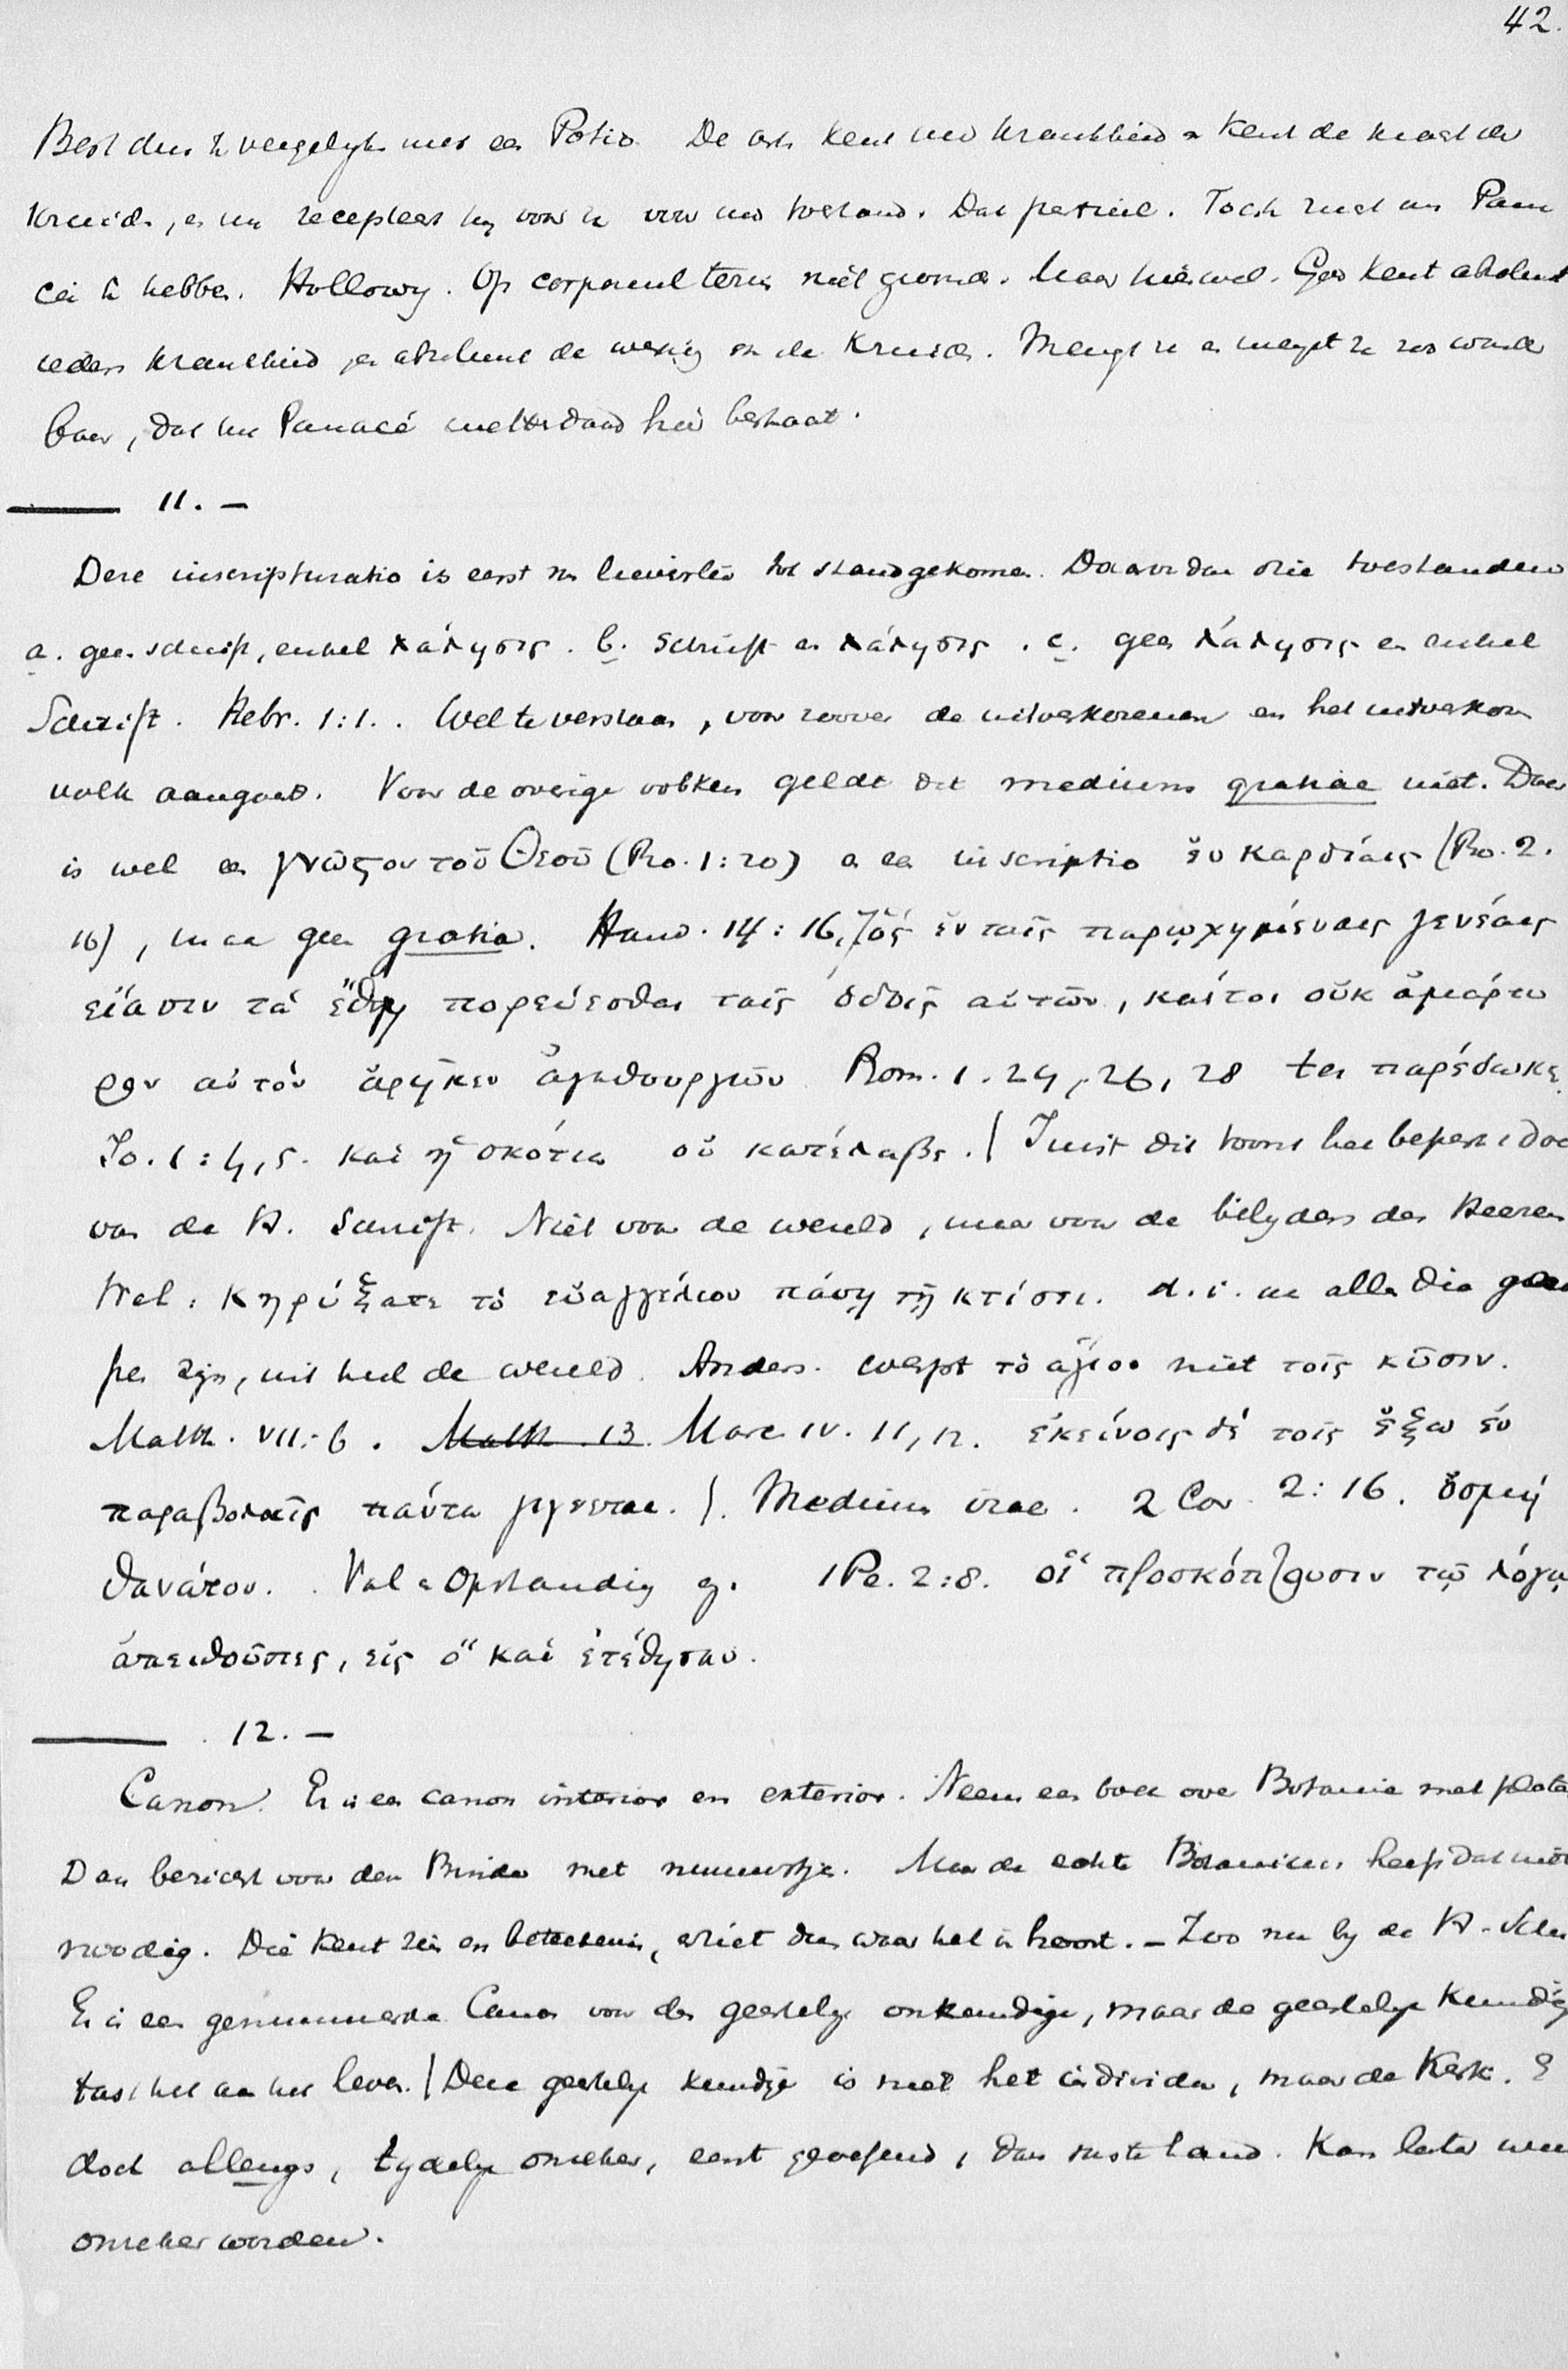 42.
Best dus te vergelyken met een Potio. De arts kent uw krankheid & kent de kracht der
kruiden, en nu recepteert hy voor u voor uw toestand. Dat partieel. Toch zoekt men Pana
cée te hebben. Hollowy. Op corporeel terrein niet grond. Maar hier wel. God kent absoluut
ieders krankheid en absoluut de werking van de kruiden. Mengt ze en mengt ze zoo wonder
baar, dat uw Panacé metterdaad hier bestaat.
11. –
Deze inscripturatio is eerst van lieverlee tot stand gekomen. Daarvan drie toestanden
a. geen schrift, enkel λάλησις. b. Schrift en λάλησις. c. geen λάλησις en enkel
Schrift. Hebr. 1:1.. Wel te verstaan, voor zoover de uitverkorenen en het uitverkoren
volk aangaat. Voor de overige volken geldt dit medium gratiae niet. Daar
is wel een γνῶςον τοῦ Θεοῦ (Ro. 1:20) en een inscriptio ἐν καρδίαις (Ro. 2.
16), maar geen gratia. Hand. 14:16,17 ὅς ἐν ταῖς παρῳχημέναις γενέαις
εἴασεν τὰ ἔθνη πορεύεσθαι ταῖς ὁδοῖς αὐτῶν, καίτοι οὐκ ἀμάρτυ
ρον αὐτὸν ἀφῆκεν ἀγαθουργῶν Rom. 1. 24, 26, 28 ter παρέδωκε.
Jo. 1:4,5. καὶ ἡ σκότια οὐ κατέλαβε. / Juist dit toont het beperkte doel
van de H. Schrift. Niet voor de wereld, maar voor de belyders des Heeren
Wel: Κηρύξατε τὸ εὐαγγέλιον πάσῃ τῇ κτίσει. d.i. aan alle die groe
pen zyn, uit heel de wereld. Anders. werpt τὸ ἅγιον niet τοῖς κυσιν.
Matth. VII:6. Matth. 13. Marc. IV. 11, 12. ἐκείνοις δέ τοῖς ἔξω ἐν
παραβολαῖς πάντα γιγνεται. /. Medium irae. 2 Cor 2:16. ὀσμή
θανάτου. Val & Opstanding g. 1 Pe. 2:8. οἳ προσκόπτουσιν τῷ λόγῳ
ἀπειθοῦντες, εἰς ὃ καὶ ἐτέθησαν.
12. –
Canon. Er is een canon interior en exterior. Neem een boek over Botanie met platen
Dan bericht voor den Binder met nummertjes. Maar de echte Botanicus heeft dat niet
noodig. Die kent zin en beteekenis, & ziet dus waar het in hoort. – Zoo nu by de H. Schr
Er is een genummerde Canon voor den geestelyk onkundige, maar de geestelyk kundige
tast het aan het leven. / Deze geestelyk kundige is niet het individu, maar de Kerk. E
doch allengs, tydelyk onzeker, eerst golvend, dan vaste land. Kan later weer
onzeker worden.